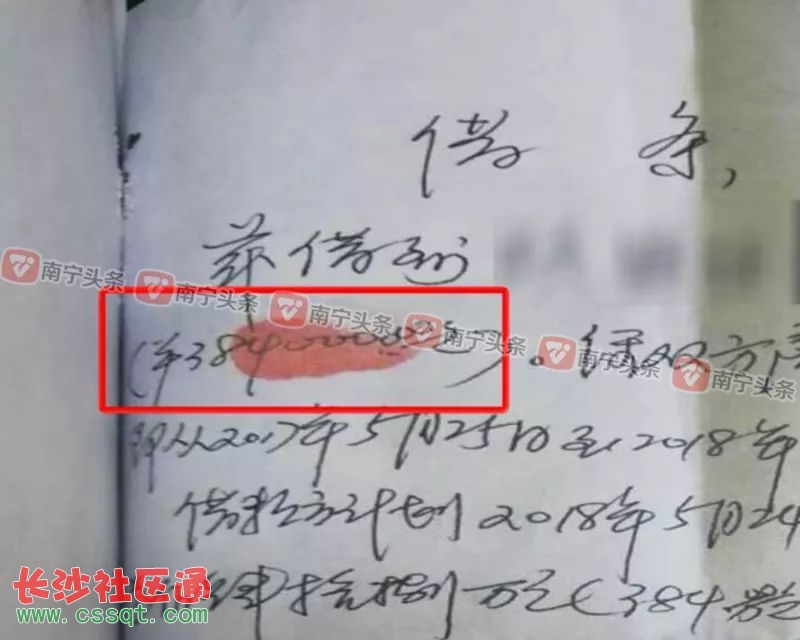 借 条,
兹借到
南宁头条 南宁头条 南宁头条 南宁头条 南宁头条 南宁头条
(¥3840000元)。经双方
即从2017年5月25日至2018年
借款方计划2018年5月24
万元(384
长沙社区通
www.cssqt.com